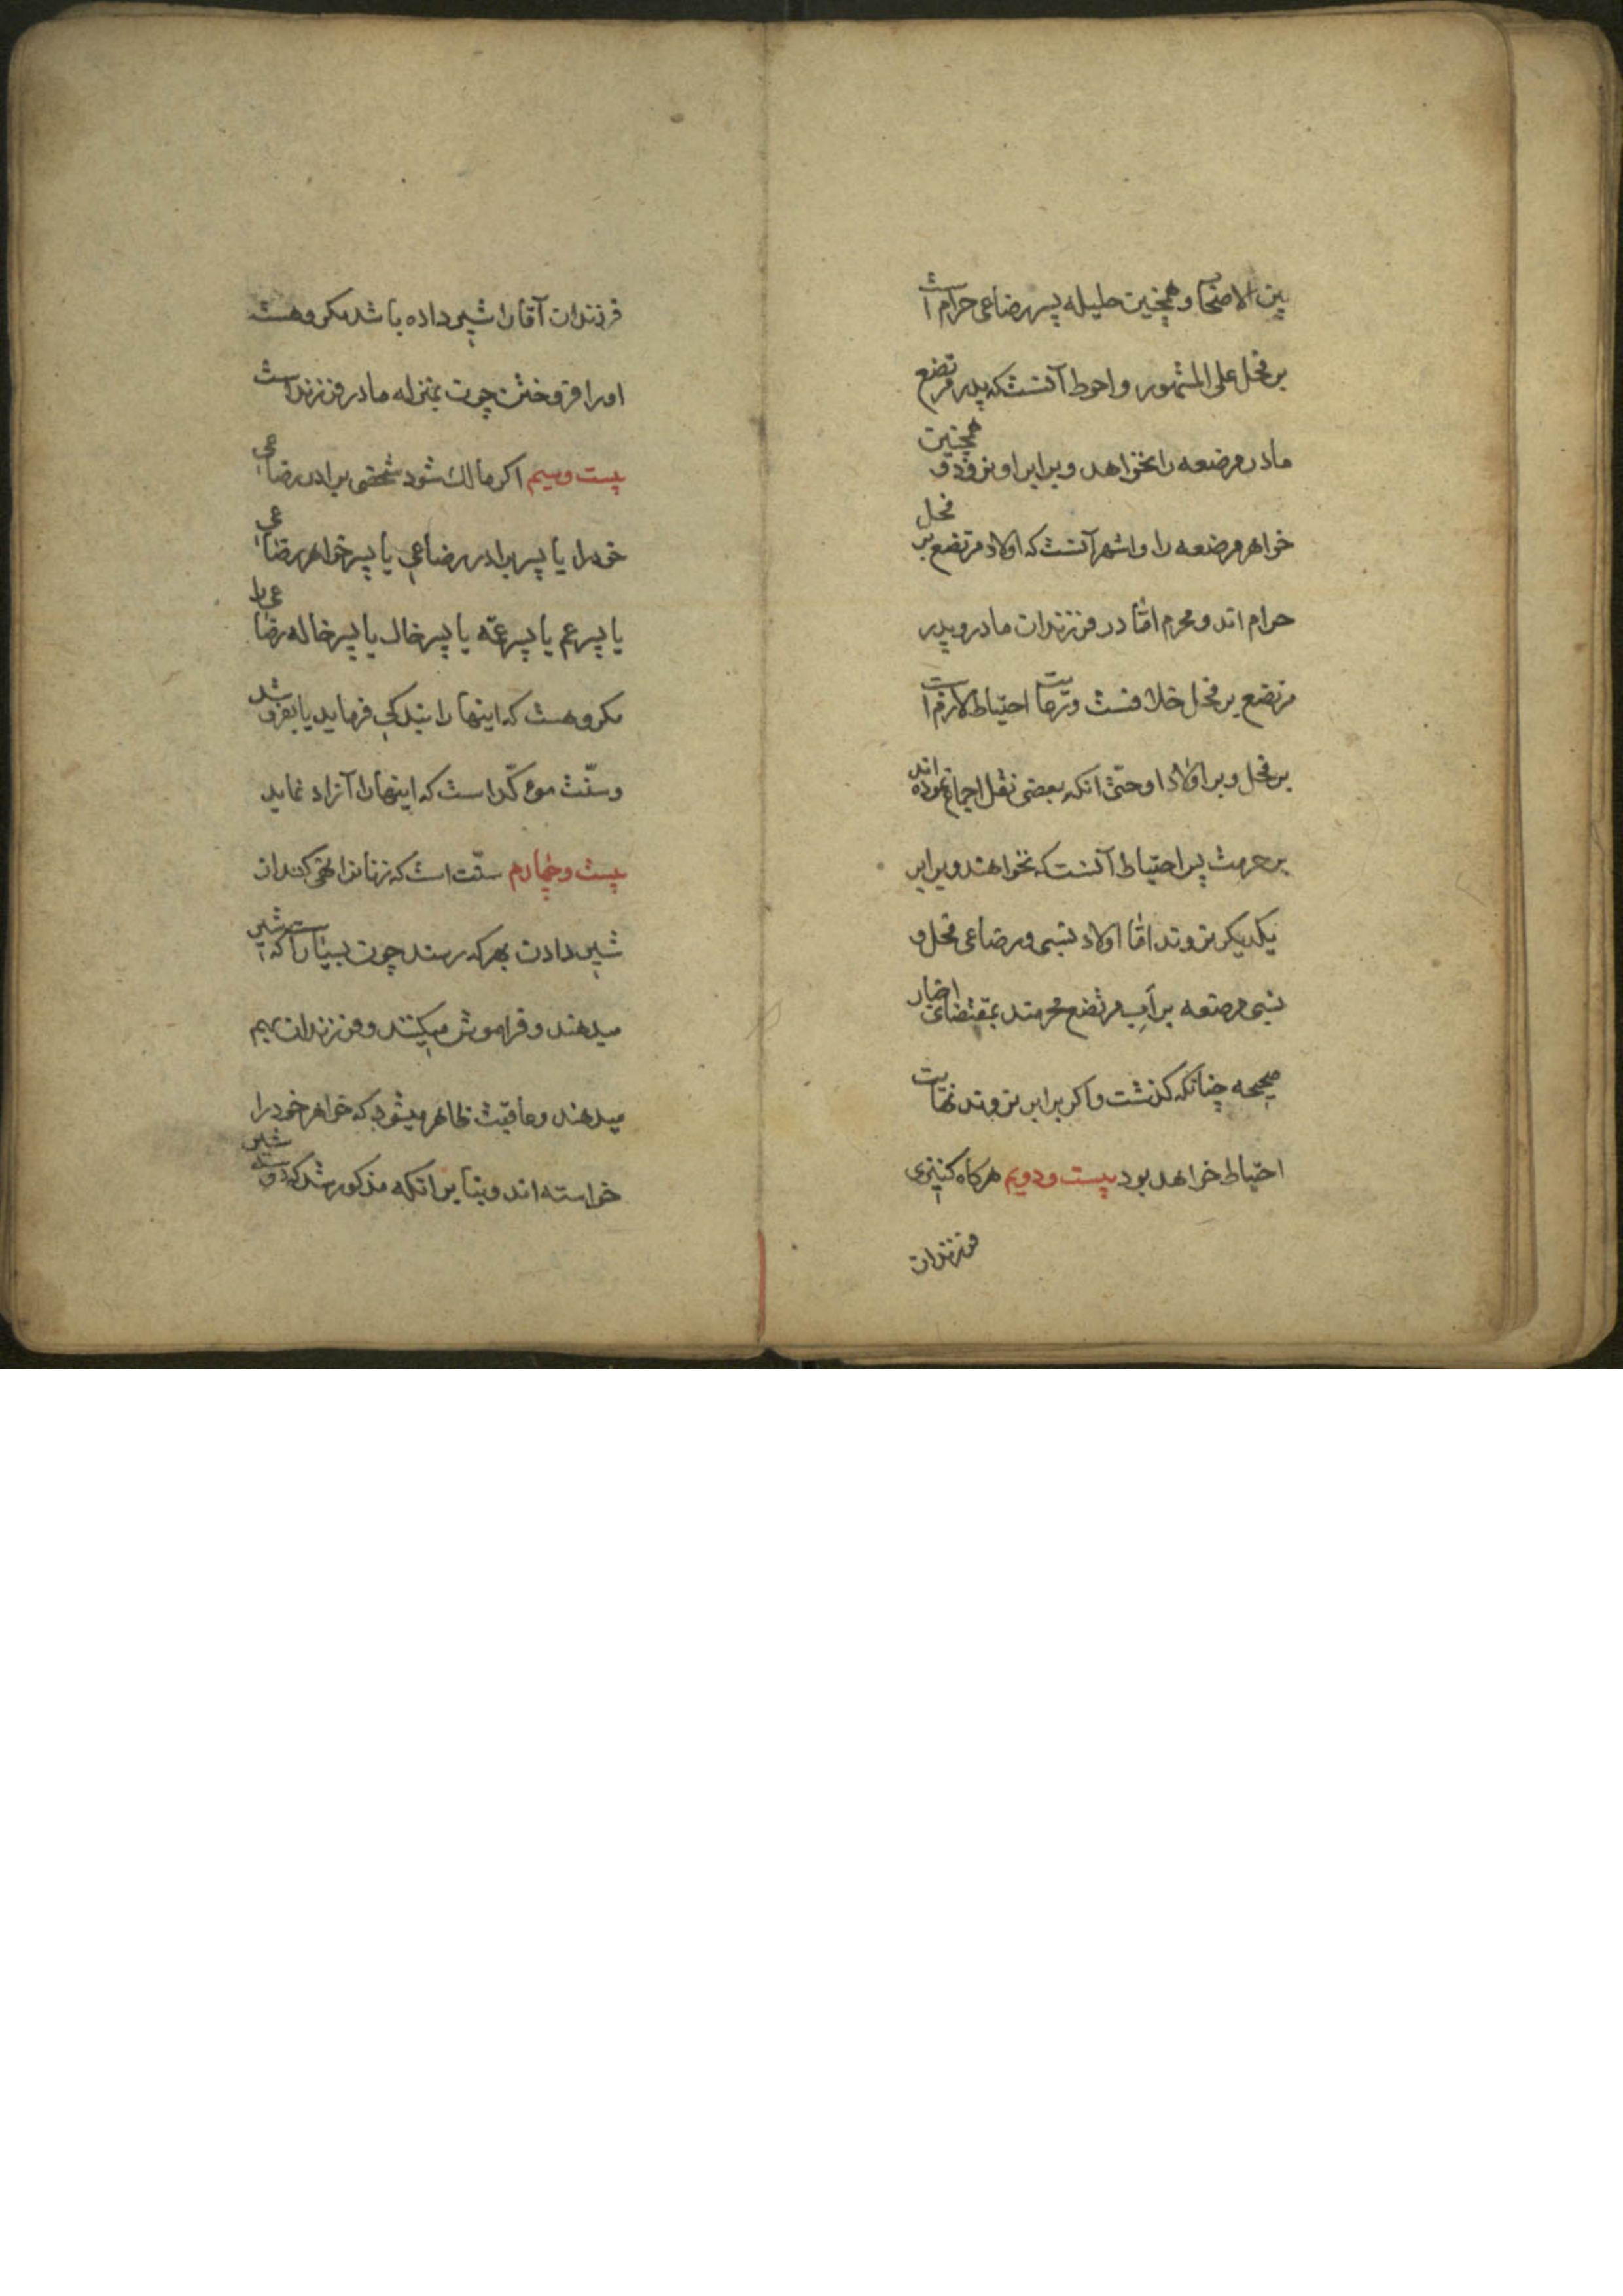 بین الاصحاب و همچنین حلیله پسر رضاعی حرام است
بر فحل علی المشهور و احوط آنست که پدر مرتضع
مادر مرضعه را نخواهد و برابر او نرود و همچنین
خواهر مرضعه را و اشهر آنست که اولاد مرتضع بر فحل
حرام اند و محرم امّا در فرزندان مادر و پدر
مرتضع بر فحل خلافست و نهایت احتیاط لازم است
بر فحل و بر اولاد او حتّی انکه بعضی نقل اجماع نموده اند
بر حرمت پس احتیاط آنست که نخواهند و برابر
یکدیکر نروند امّا اولاد نسبی و رضاعی فحل و
نسبی مرضعه بر اب مرتضع محرمند بمقتضای اخبار
صحیحه چنانکه کذشت و اکر برابر نروند نهایت
احتیاط خواهد بود بیست و دویم هرکاه کنیزی
فرزندان
فرزندان آقا را شیر داده باشد مکروهست
او را فروختن چون بمنزله مادر فرزند است
بیست و سیم اکر مالک شود شخصی برادر رضاعی
خود را یا پسر برادر رضاعی یا پسر خواهر رضاعی
یا پسر عم یا پسر عمّه یا پسر خال یا پسر خاله رضاعی را
مکروهست که اینها را بندکی فرماید یا بفروشد
و سنّت موءکّد است که اینها را آزاد نماید
بیست و چهارم سنّت است که زنانرا نهی کنند از
شیر دادن بهر که رسند چون بسیار است که شیر
میدهند و فراموش میکنند و فرزندان بهم
میدهند و عاقبت ظاهر میشود که خواهر خود را
خواسته اند و بنا بر انکه مذکور شد که دو شیر